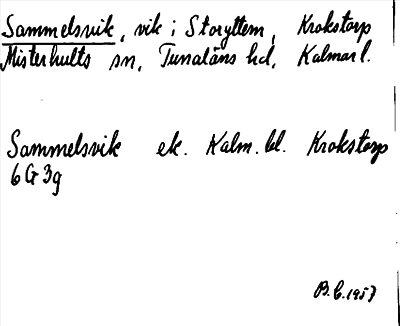 Sammelsvik, vik i Storyttern, Krokstorp
Misterhults sn, Tunaläns hd, Kalmar l.
Sammelsvik ek. Kalm. bl. Krokstorp
6G3g
B.C. 1957